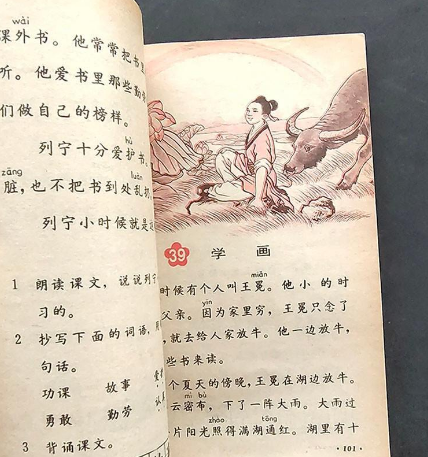 wài
课外书。他常常把书
听。他爱书里那些勤
们做自己的榜样。
hù
列宁十分爱护书。
zāng luàn
脏，也不把书到处乱扔
列宁小时候就是这
1 朗读课文，说说列宁
习的。
2 抄写下面的词语，
句话。
功课 故事
勇敢 勤劳
3 背诵课文。
39 学画
miǎn
时候有个人叫王冕。他小的时
yīn
父亲。因为家里穷，王冕只念了
，就去给人家放牛。他一边放牛，
些书来读。
个夏天的傍晚，王冕在湖边放牛。
mì bù
云密布，下了一阵大雨。大雨过
zhào tōng
片阳光照得满湖通红。湖里有十
·101·